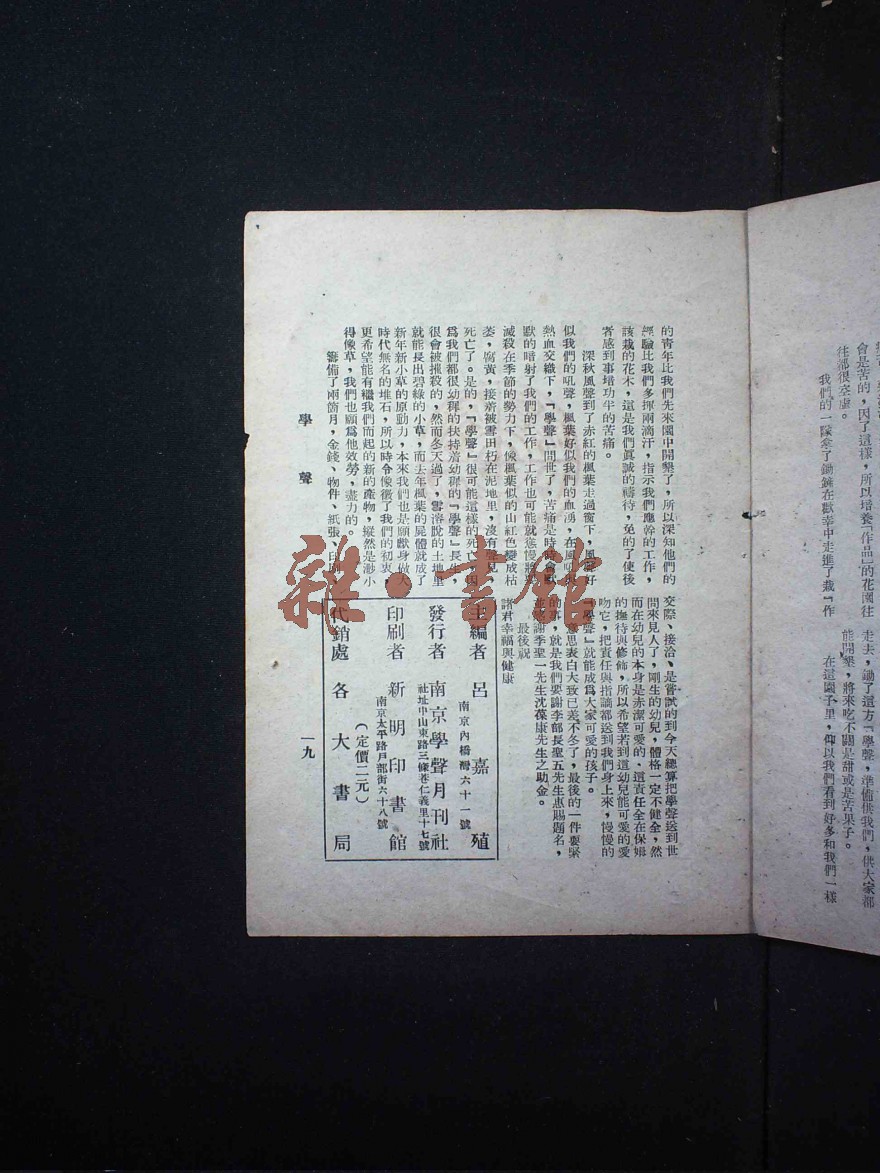 會是苦的，因了這樣，所以培養「作品」的花園往
往都很空虛。
我們的一隊拿了鋤鏟在歡幸中走進了栽「作
走去，鋤了這方「學聲，準備供我們，供大家都
能開墾，將來吃不闢是甜或是苦果子。
在這園子里，仰以我們看到好多和我們一樣
的青年比我們先來園中開墾了，所以深知他們的
經驗比我們多揮兩滴汗，指示我們應幹的工作，
該栽的花木，這是我們眞誠的禱待，免的了使後
者感到事培功半的苦痛。
深秋風聲到了赤紅的楓葉走過窗下，風聲好
似我們的吼聲，楓葉好似我們的血湧，在風吼與
熱血交織下，『學聲』問世了，苦痛是時時會默
默的暗射了我們的工作，工作也可能就慈慢將
滅殺在季節的勢力下，像楓葉似的山紅色變成枯
萎，腐黃，接着被雪田朽在泥地里，沒有聲兒，
死亡了。是的，『學聲』很可能這樣的死亡，因
爲我們都很幼穉的扶持着幼穉的『學聲』長生，
很會被摧殺的，然而冬天過了，雪溶脫的土地里
就能長出碧綠的小草，而去年楓葉的屍體就成了
新年新小草的原動力，本來我們也是願獻身做大
時代無名的堆石，所以時令像徵了我們的初衷，
更希望能有繼我們而起的新的產物，縱然是渺小
得像草，我們也願爲他效勞，盡力的。
籌備了兩箇月，金錢、物件、紙張、印刷、
交際、接洽、是嘗試的到今天總算把學聲送到世
間來見人了，剛生的幼兒，體格一定不健全，然
而在幼兒的本身是赤潔可愛的，這責任全在保姆
的撫待與修飾，所以希望若到這幼兒能可愛的愛
吻它，把責任與指謫都送到我們身上來，慢慢的
『學聲』就能成爲大家可愛的孩子。
意思表白大致已差不多了，最後的一件要緊
的事，就是我們要謝李部長聖五先生惠賜題名，
並感謝季聖一先生沈葆康先生之助金。
最後祝
諸君幸福與健康
主編者 呂嘉殖
南京內橋灣六十一號
發行者 南京學聲月刊社
社址中山東路三條巷仁義里十七號
印刷者 新明印書館
南京太平路戶部街六十八號
（定價二元）
代銷處 各大書局
學聲
一九
雜·書館